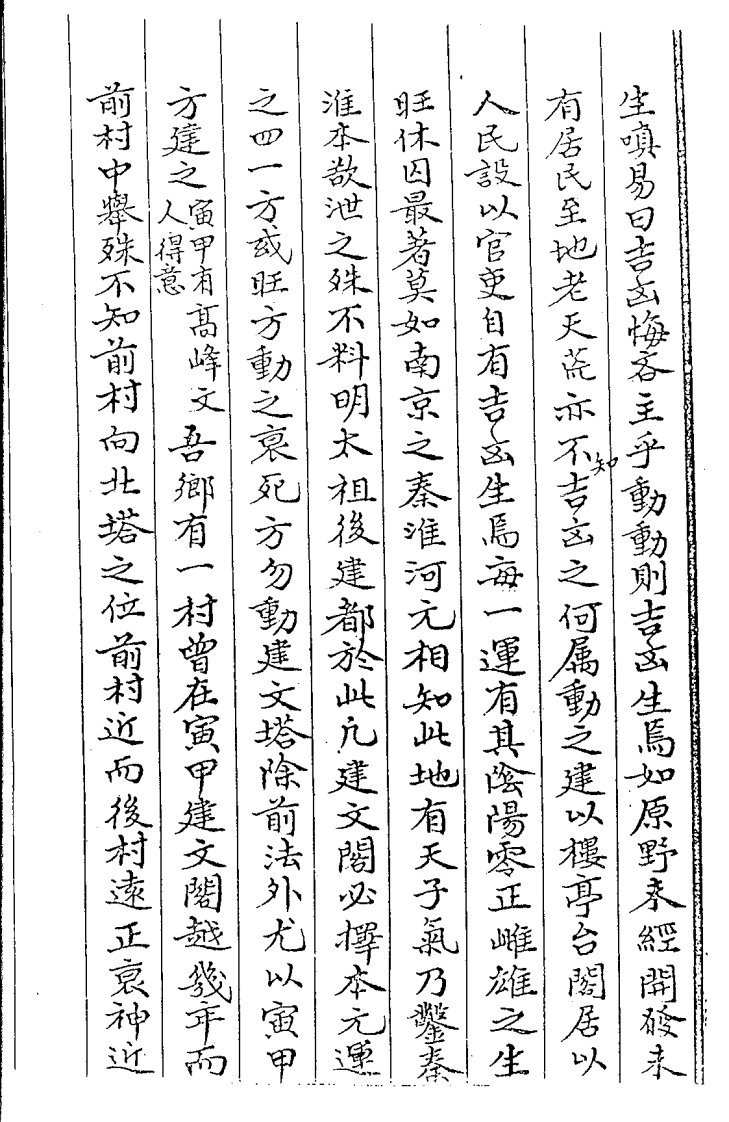 生嗔易曰吉凶悔吝主乎動動則吉凶生焉如原野未經開發未
有居民至地老天荒亦不知吉凶之何属動之建以樓亭台閣居以
人民設以官吏自有吉凶生焉每一運有其陰陽零正雌雄之生
旺休囚最著莫如南京之秦淮河元相知此地有天子氣乃鑿秦
淮本欲泄之殊不料明太祖後建都於此凡建文閣必擇本元運
之四一方或旺方動之衰死方勿動建文塔除前法外尤以寅甲
方建之寅甲有高峰文人得意吾鄉有一村曾在寅甲建文閣越幾年而
前村中舉殊不知前村向北塔之位前村近而後村遠正衰神近